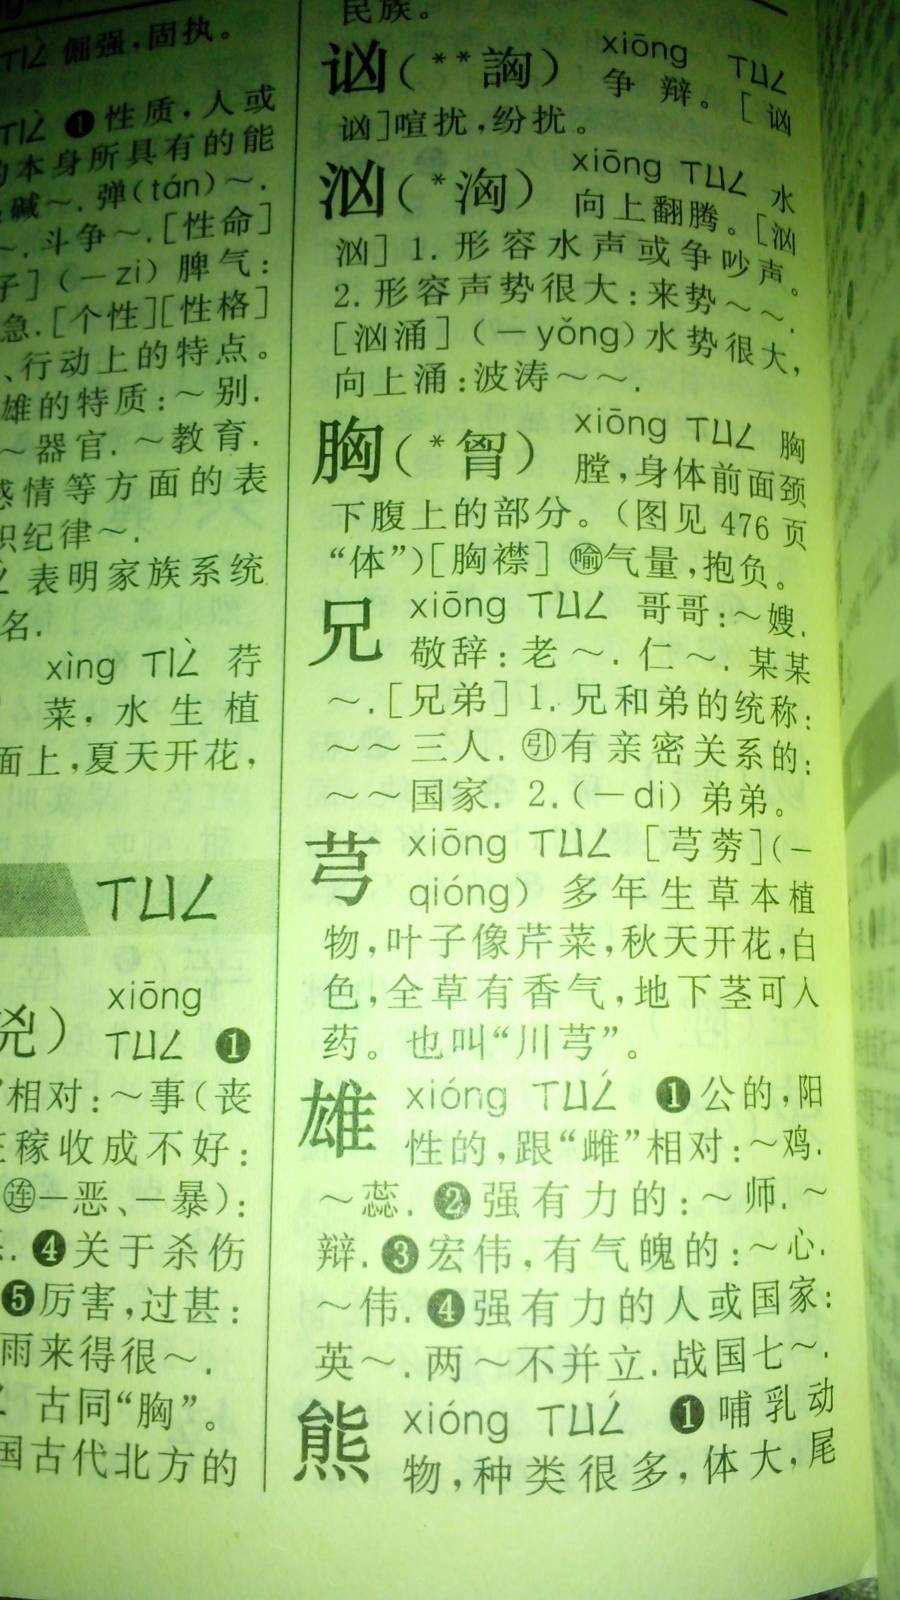 ㄒㄧㄥˋ 倔强,固执。
ㄒㄧㄥˋ ❶性质,人或
本身所具有的能
碱~. 弹(tán)~.
~. 斗争~.[性命]
子](—zi)脾气:
急.[个性][性格]
、行动上的特点。
雄的特质:~别.
~器官. ~教育.
感情等方面的表
织纪律~.
表明家族系统
名.
xìng ㄒㄧㄥˋ 荇
菜,水生植
面上,夏天开花,
ㄒㄩㄥ
xiōng
ㄒㄩㄥ ❶
相对:~事(丧
庄稼收成不好:
㊣连—恶、—暴):
❹关于杀伤
❺厉害,过甚:
雨来得很~.
古同“胸”。
国古代北方的
民族。
讻(**訩) xiōng ㄒㄩㄥ
争辩。[讻
讻]喧扰,纷扰。
汹(*洶) xiōng ㄒㄩㄥ 水
向上翻腾。[汹
汹] 1. 形容水声或争吵声。
2. 形容声势很大:来势~~.
[汹涌](—yǒng)水势很大,
向上涌:波涛~~.
胸(*胷) xiōng ㄒㄩㄥ 胸
膛,身体前面颈
下腹上的部分。(图见 476 页
“体”)[胸襟] ㊣喻气量,抱负。
兄 xiōng ㄒㄩㄥ 哥哥:~嫂.
敬辞:老~. 仁~. 某某
~.[兄弟] 1. 兄和弟的统称:
~~三人. ㊣引有亲密关系的:
~~国家. 2.(—di)弟弟。
芎 xiōng ㄒㄩㄥ [芎䓖](—
qióng)多年生草本植
物,叶子像芹菜,秋天开花,白
色,全草有香气,地下茎可入
药。也叫“川芎”。
雄 xióng ㄒㄩㄥˊ ❶公的,阳
性的,跟“雌”相对:~鸡.
~蕊. ❷强有力的:~师. ~
辩. ❸宏伟,有气魄的:~心.
~伟. ❹强有力的人或国家:
英~. 两~不并立. 战国七~.
熊 xióng ㄒㄩㄥˊ ❶哺乳动
物,种类很多,体大,尾